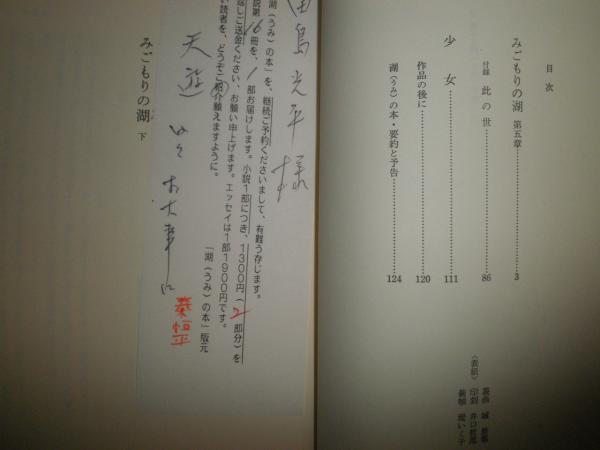 目次
みごもりの湖 第五章 3
付録 此の世 86
少女 111
作品の後に 120
湖(うみ)の本・要約と予告 124
〈表紙〉
装画 城
印刻 井口哲郎
装幀 堤いく子
島光平様
湖(うみ)の本」を、継続ご予約くださいまして、有難う存じます。
説第16冊を、1部お届けします。小説1部につき、1300円(2部分)を
しご送金ください、お願い申上げます。エッセイは1部1900円です。
い読者を、どうぞご紹介願えますように。
「湖(うみ)の本」版元
天遊
お大事に
秦恒平
みごもりの湖 下